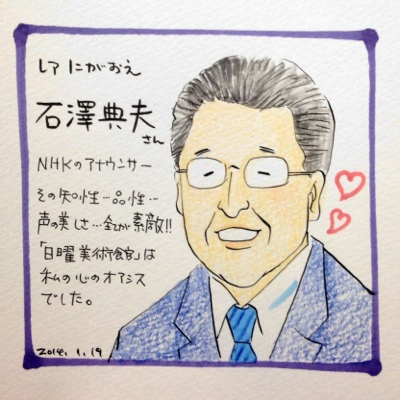 レアにがおえ
石澤典夫
さん
NHKのアナウンサー
その知性…品性…
声の美しさ…全てが素敵!!
「日曜美術館」は
私の心のオアシス
でした。
2014.1.19